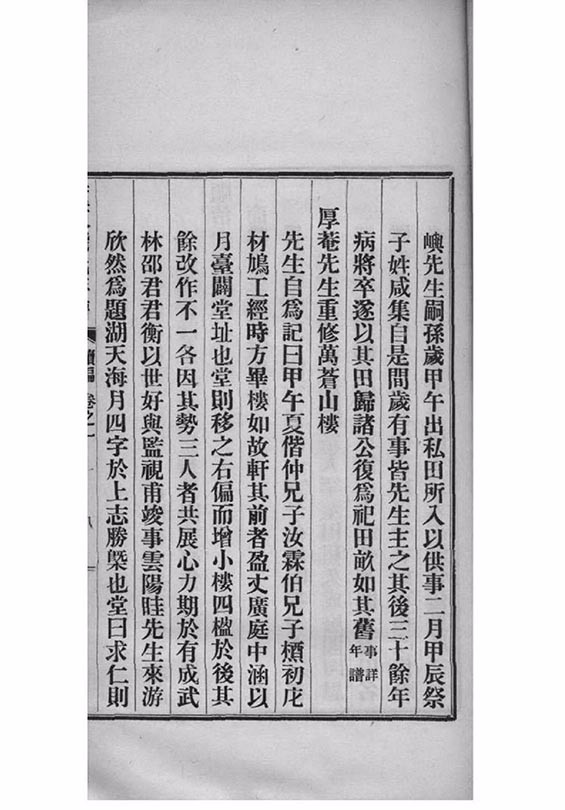 嶼先生嗣孫歲甲午出私田所入以供事二月甲辰祭
子姓咸集自是間歲有事皆先生主之其後三十餘年
病將卒遂以其田歸諸公復爲祀田畝如其舊事詳年譜
厚菴先生重修萬蒼山樓
先生自爲記曰甲午夏偕仲兄子汝霖伯兄子櫄初庀
材鳩工經時方畢樓如故軒其前者盈丈廣庭中涵以
月臺闢堂址也堂則移之右偏而增小樓四楹於後其
餘改作不一各因其勢三人者共展心力期於有成武
林邵君君衡以世好與監視甫竣事雲陽眭先生來游
欣然爲題湖天海月四字於上志勝槩也堂曰求仁則
續編 卷之一
八